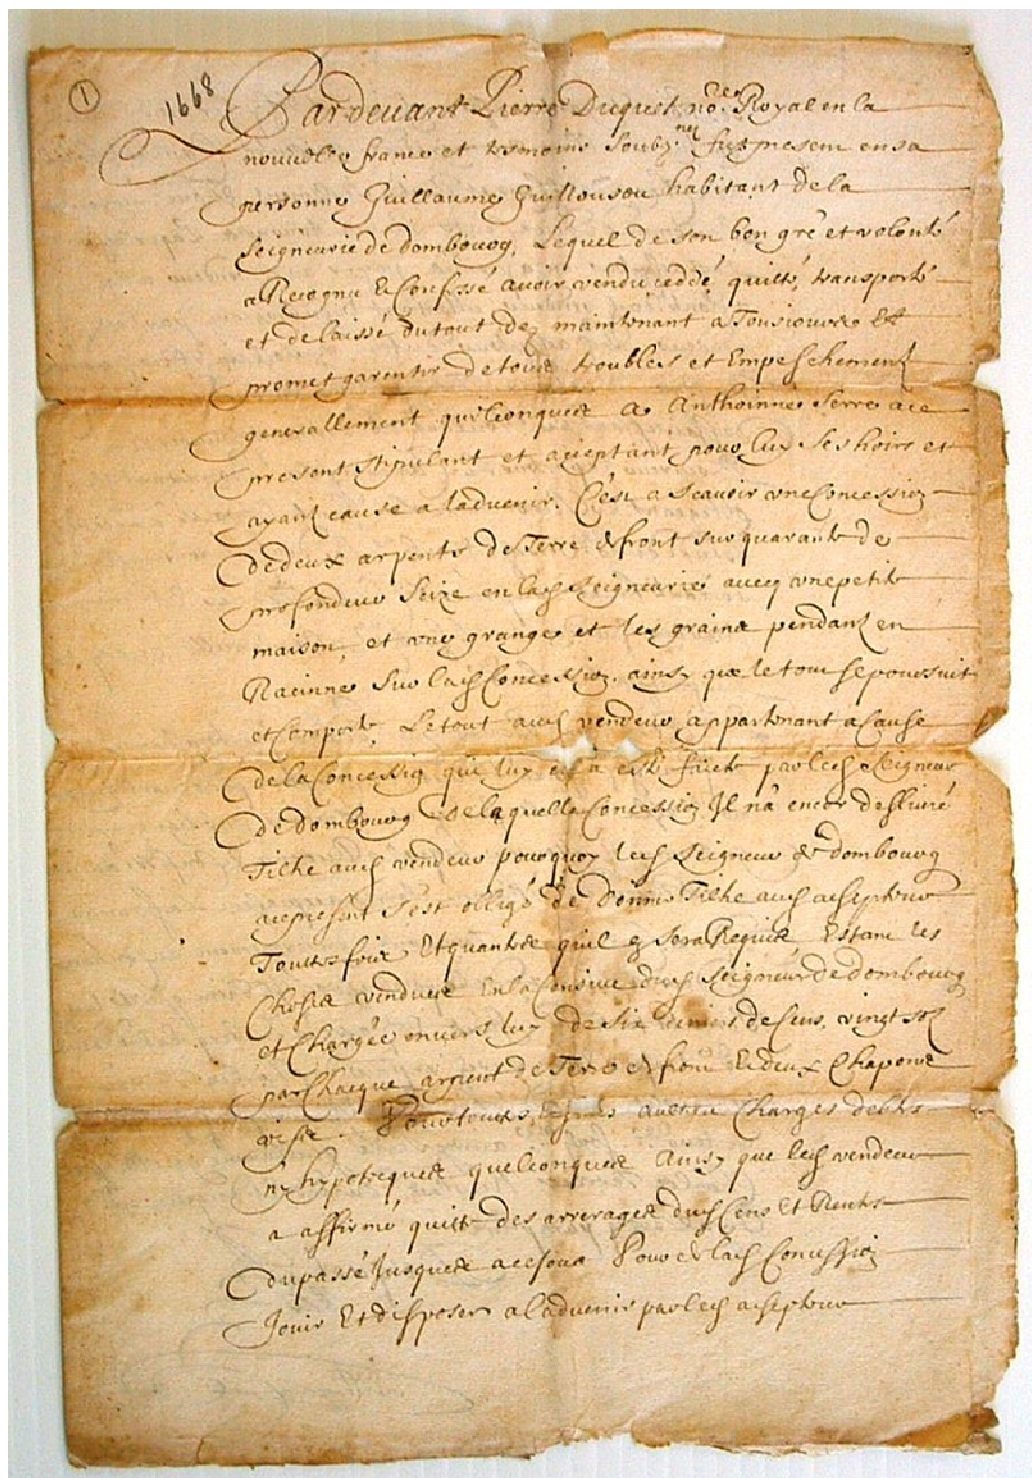 ①
1668
Pardevant Pierre Duquet no.re Royal en la
nouvelle france et tesmoins soubz.nez fut present en sa
personne Guillaume Guillouson habitant de la
seigneurie de dombourg, Lequel de son bon gré et volonté
a Recognu Et Confessé avoir vendu ceddé quitté transporté
et delaissé du tout dez maintenant a Tousiours Et
promet garentir de tous troubles et Empeschement
generallement quelconques a Anthoinne Serre a ce
present stipulant et aceptant pour luy ses hoirs et
ayant cause a ladvenir. C'est a scavoir une Concession
de deux arpents de Terre de front sur quarante de
profondeur Seize en lad seigneurie avecq une petite
maison, et une grange et les grains pendant en
Racinne sur lad Concession. ainsy que le tout se poursuit
et Comporte, Le tout aud vendeur appartenant a Cause
de la Concession qui luy en a esté faicte par led seigneur
de dombourg de laquelle Concession Il n'a encor deslivré
Tiltre aud vendeur pourquoy led Seigneur de dombourg
a ce present s'est obligé de donner Tiltre aud acepteur
Touttes fois Et quantes qu'il en sera Requis Estant les
Choses vendues En la Censive dud Seigneur de dombourg
et Chargée envers luy de six deniers de Cens, vingt solz
par Chacque arpent de Terre de front Et deux Chapons
vifs. Pour touttes Charges debtes
ny hypotecques quelconques Ainsy que led vendeur
a affirmé quitte des arrerages dud Cens Et Rentes
du passé Jusques a ce Jour Pour de lad Concession
Jouir Et disposer a ladvenir par led acepteur